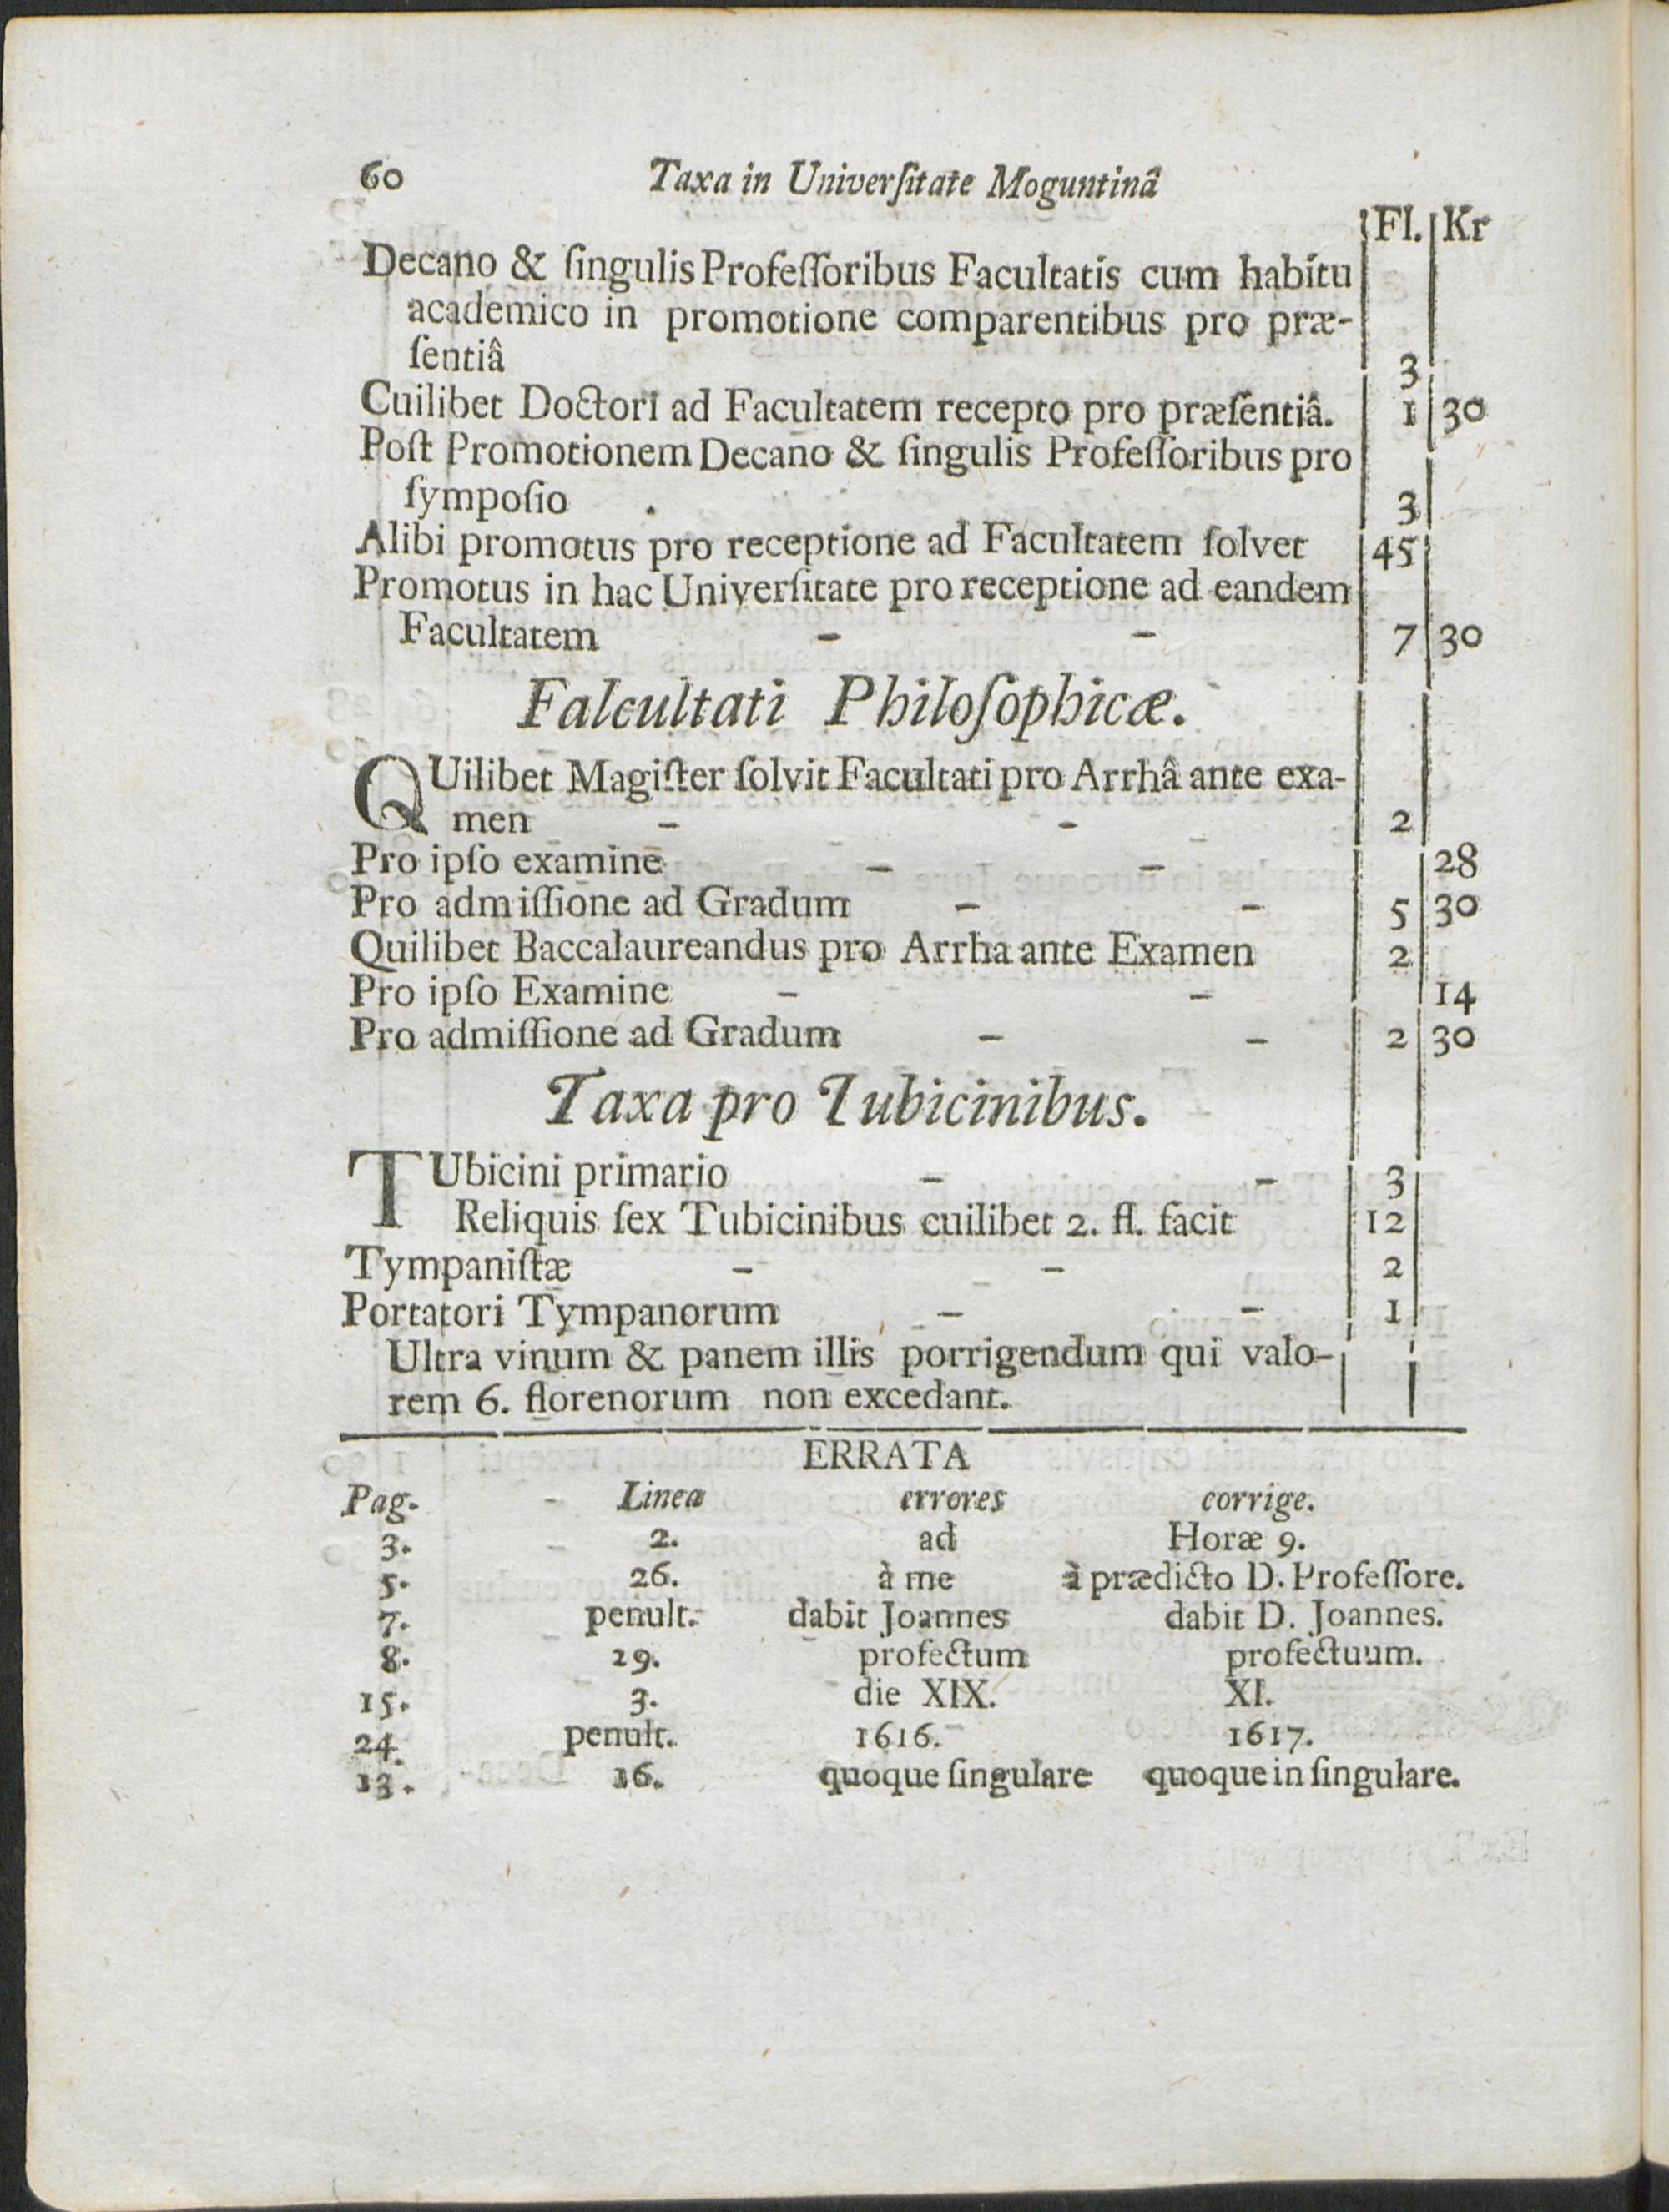 60 Taxa in Univerſitate Moguntinâ
Fl. Kr
Decano & ſingulis Profeſſoribus Facultatis cum habitu
academico in promotione comparentibus pro præ-
ſentiâ 3
Cuilibet Doctori ad Facultatem recepto pro præſentiâ. 1 30
Poſt Promotionem Decano & ſingulis Profeſſoribus pro
ſympoſio 3
Alibi promotus pro receptione ad Facultatem ſolvet 45
Promotus in hac Univerſitate pro receptione ad eandem
Facultatem - - 7 30
Falcultati Philoſophicæ.
QUilibet Magiſter ſolvit Facultati pro Arrhâ ante exa-
men - - 2
Pro ipſo examine - - 28
Pro admiſſione ad Gradum - - 5 30
Quilibet Baccalaureandus pro Arrha ante Examen 2
Pro ipſo Examine - - 14
Pro admiſſione ad Gradum - - 2 30
Taxa pro Tubicinibus.
TUbicini primario - - 3
Reliquis ſex Tubicinibus cuilibet 2. fl. facit 12
Tympaniſtæ - - 2
Portatori Tympanorum - - 1
Ultra vinum & panem illis porrigendum qui valo-
rem 6. florenorum non excedant.
ERRATA
Pag. Linea errores corrige.
3. 2. ad Horæ 9.
5. 26. à me à prædicto D. Profeſſore.
7. penult. dabit Joannes dabit D. Joannes.
8. 29. profectum profectuum.
15. 3. die XIX. XI.
24. penult. 1616. 1617.
13. 16. quoque ſingulare quoque in ſingulare.